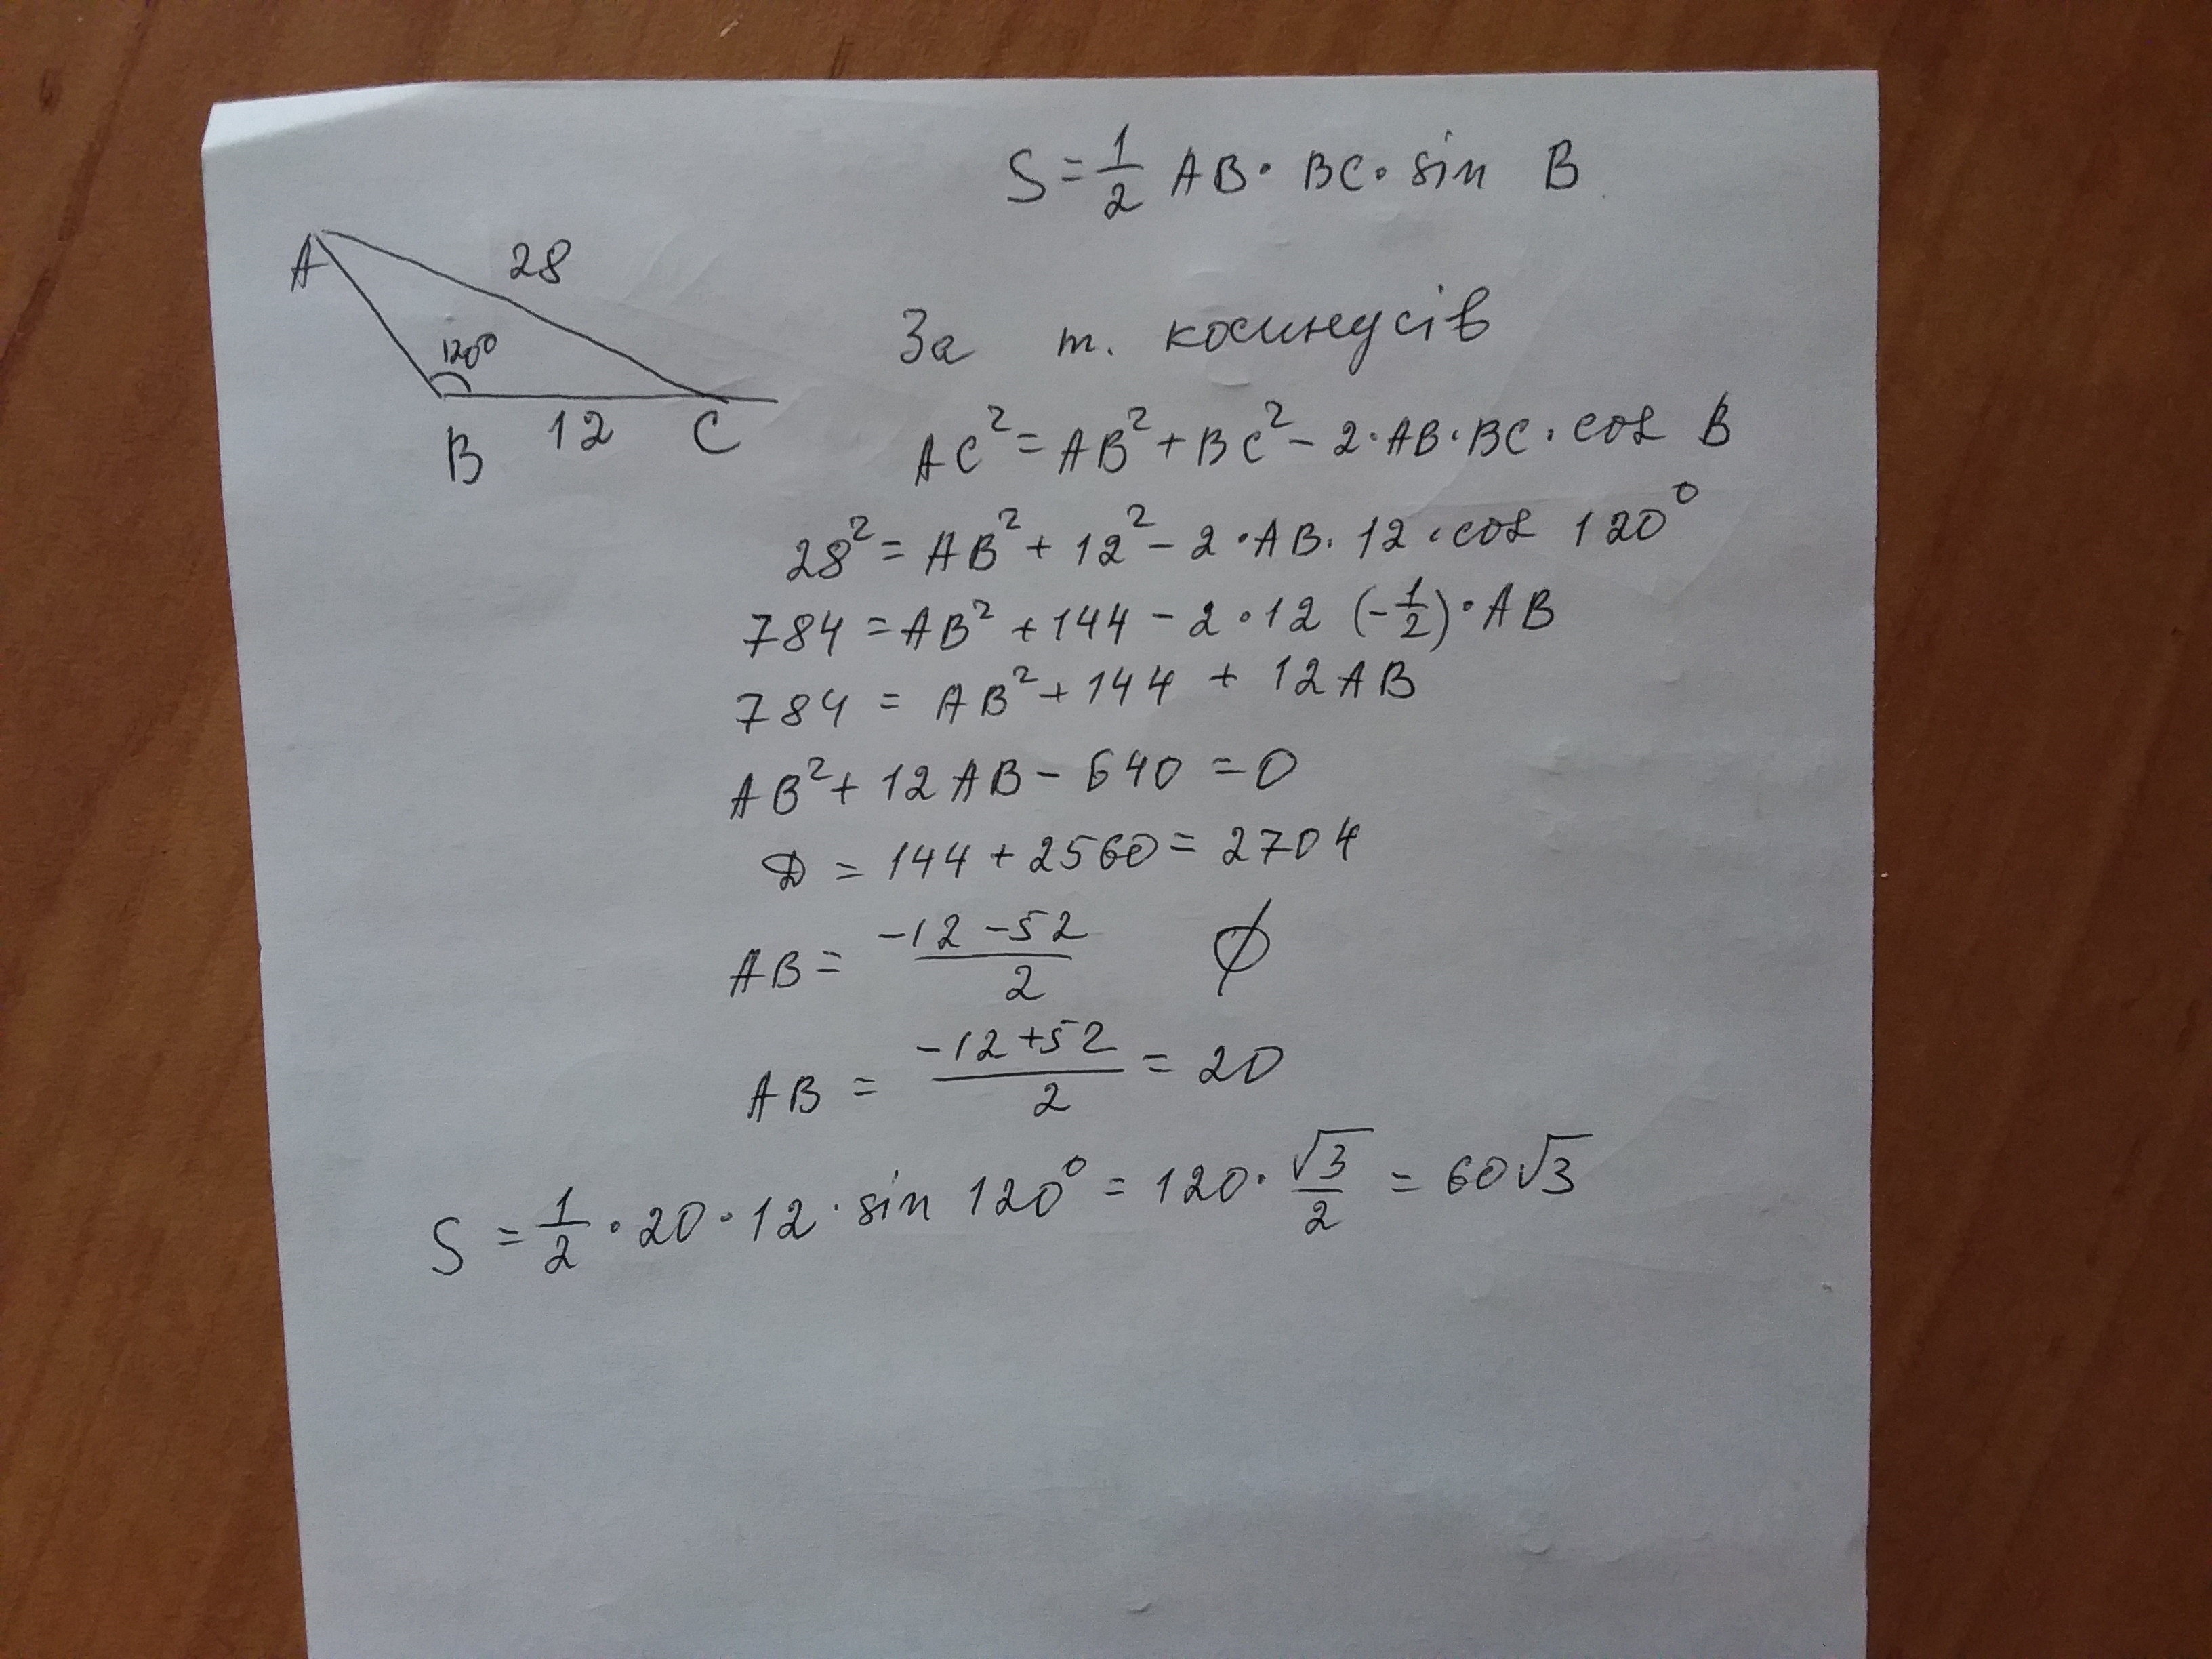 S = 1/2 AB · BC · sin B
A
28
120°
B 12 C
За т. косинусів
AC² = AB² + BC² - 2 · AB · BC · cos B
28² = AB² + 12² - 2 · AB · 12 · cos 120°
784 = AB² + 144 - 2 · 12 (-1/2) · AB
784 = AB² + 144 + 12AB
AB² + 12AB - 640 = 0
D = 144 + 2560 = 2704
AB = (-12 - 52)/2 ∅
AB = (-12 + 52)/2 = 20
S = 1/2 · 20 · 12 · sin 120° = 120 · √3/2 = 60√3